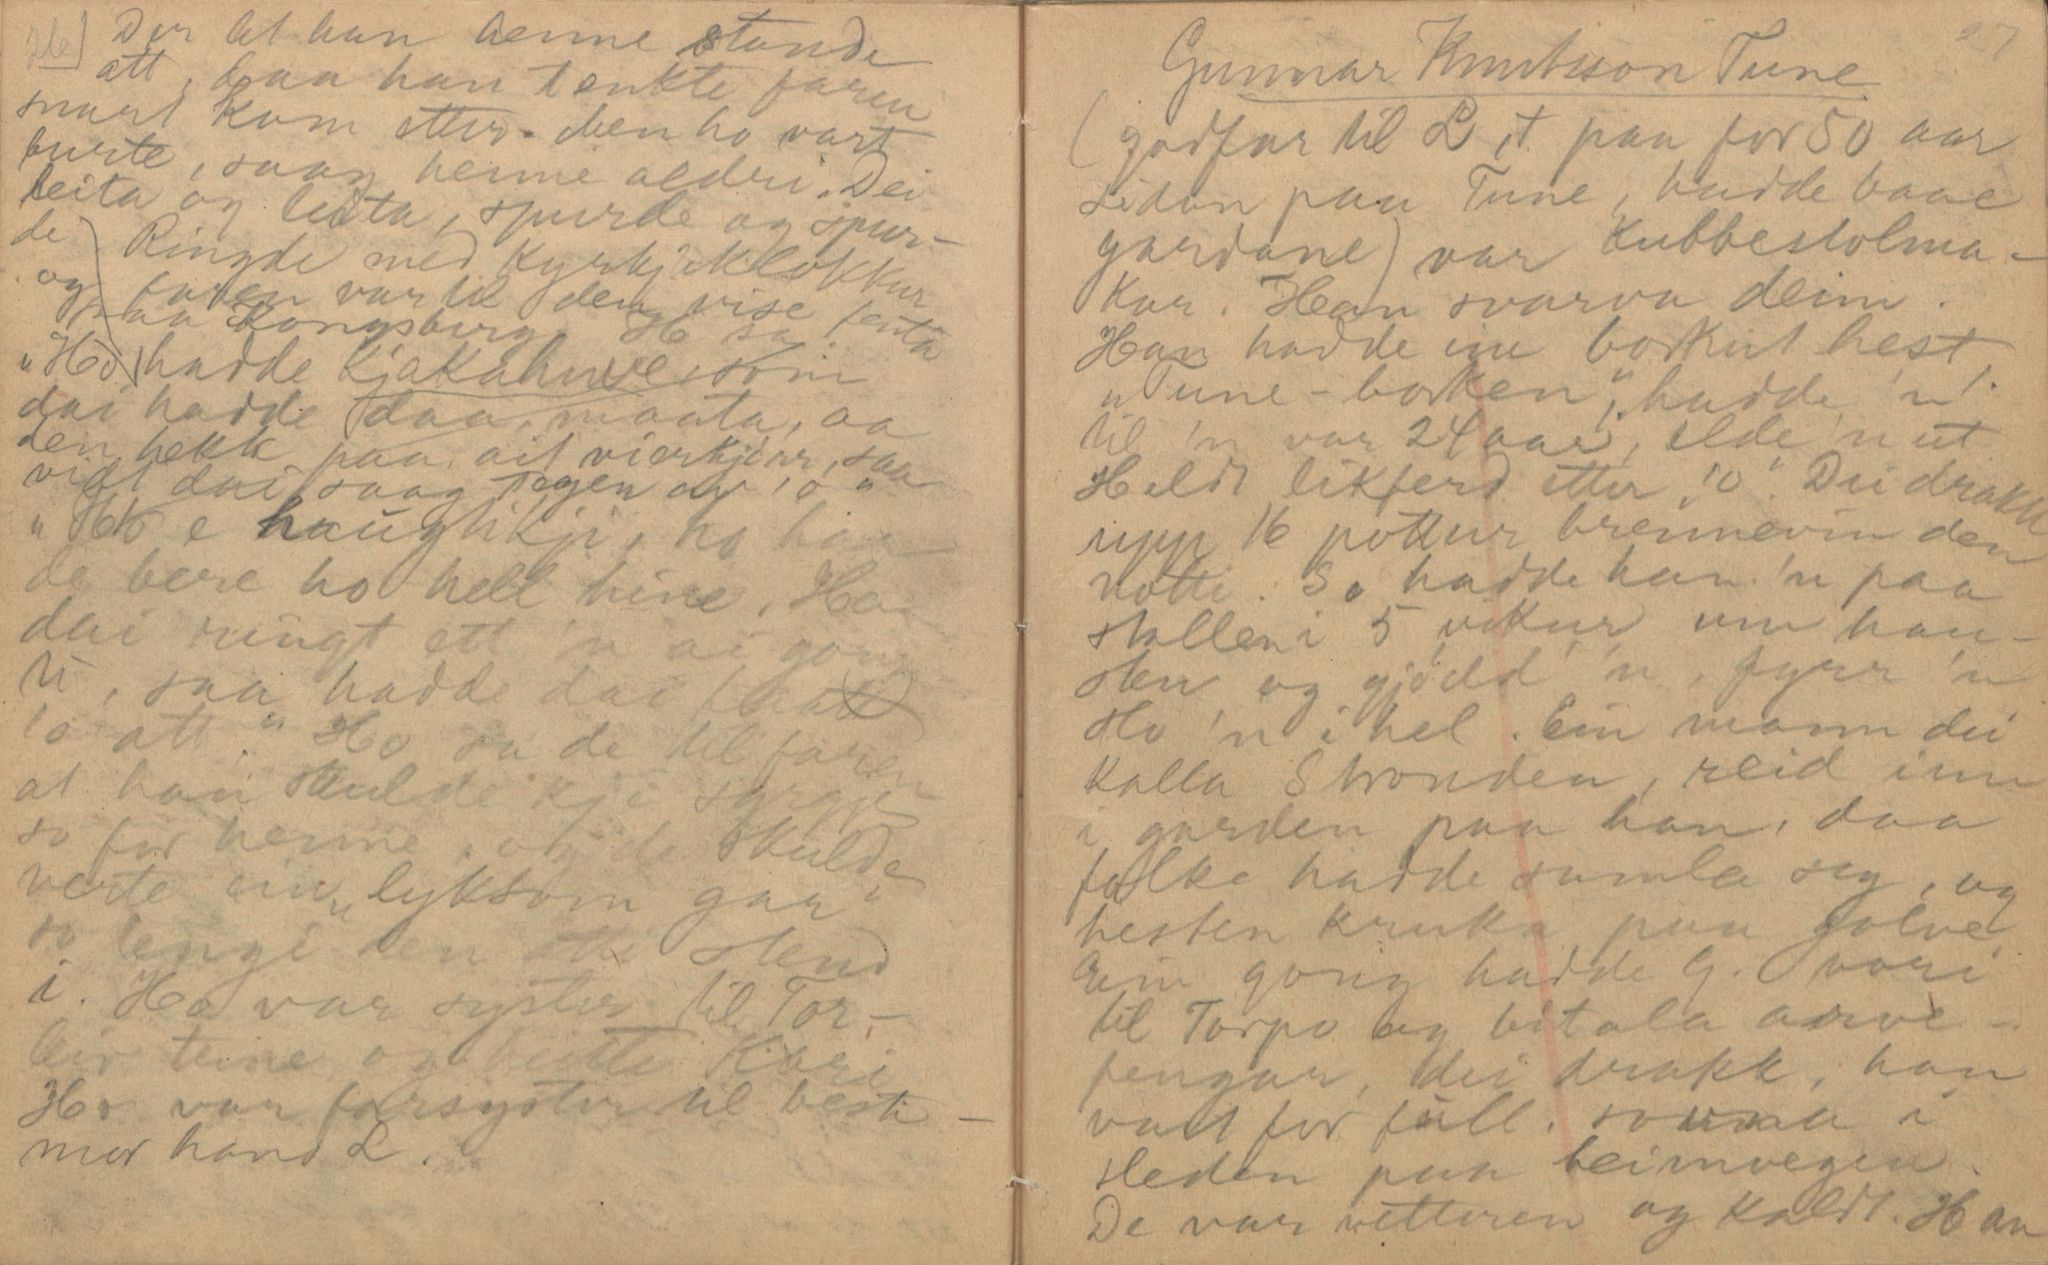 26]
Der let han henne stande
att, daa han tenkte faren
snart kom etter. Men ho vart
burte, saag henne aldri. Dei
leita og leita, spurde og spur-
de Ringde med kyrkjeklokkur
og faren var til den vise jenta
paa Kongsberg. Ho sa:
"Ho hadde kjakahuve, som
dai hadde daa, maata, aa
den hekk paa ait vierkjær, saa
vidt dai saag tegen ette 'o"
"Ho e haugtikji, ho ha
de bere ho hell hine. Ha
dai ringt ett 'n ai gong
ti, saa hadde dai faatt
'o att." Ho sa de til faren
at han skulde kji syrgje
so for henne, og de skulde
verte ein "lyksom gar"
so lengi den ætti stend
i. Ho var syster til Tor-
leiv Teine og heitte Kari
Ho var farsyster til beste-
mor hans L.
27
Gunnar Knutsson Tune
(godfar til L, t. paa for 50 aar
sidan paa Tune, hadde baae
gardane) var kubbestolma-
kar. Han svarva deim.
Han hadde ein borkut hest,
"Tune-borken", hadde 'n
til 'n var 24 aar, elde 'n ut
Heldt likferd etter 'o. Dei drakk
upp 16 pottur brennevin den
notti. So hadde han 'n paa
stallen i 5 vikur um hau-
sten og gjødd 'n, fyrr 'n
slo 'n i hel. Ein mann dei
kalla Stronden, reid inn
i garden paa han, daa
folke hadde samla seg, og
hesten kruka paa golve.
Ein gong hadde G. vori
til Torpo og betala arve-
pengar, dei drakk, han
vart for full, sovna i
sleden paa heimvegen.
De var vetteren og kaldt. Han